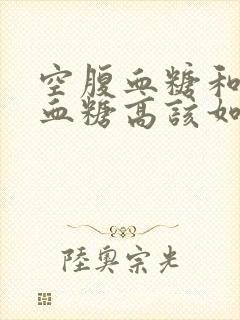 空腹血糖和
血糖高该如
陸奥宗光